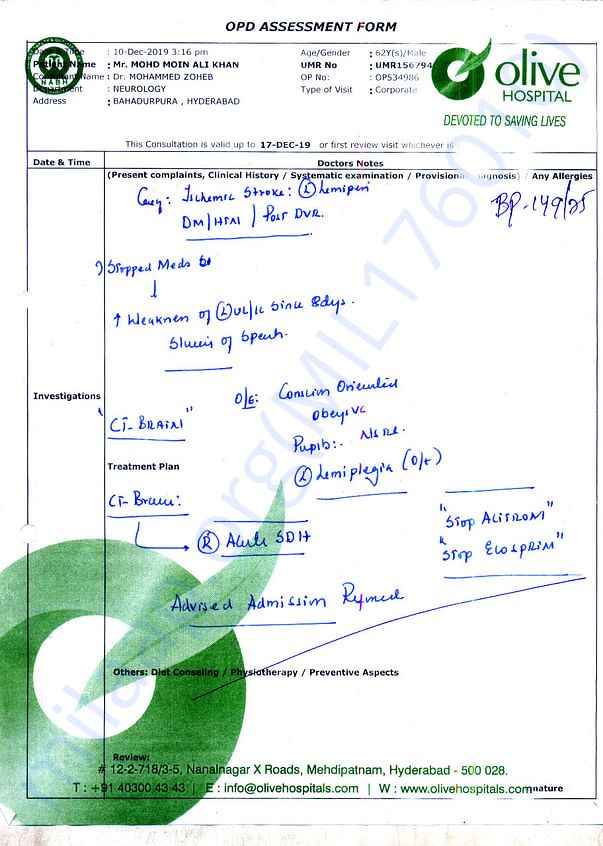 OPD ASSESSMENT FORM
Date & Time : 10-Dec-2019 3:16 pm Age/Gender : 62Y(s)/Male
Patient Name : Mr. MOHD MOIN ALI KHAN UMR No : UMR156794
Name : Dr. MOHAMMED ZOHEB OP No: : OP534986
: NEUROLOGY Type of Visit : Corporate
Address : BAHADURPURA , HYDERABAD
NABH
olive
HOSPITAL
DEVOTED TO SAVING LIVES
This Consultation is valid up to 17-DEC-19 or first review visit whichever is
Date & Time Doctors Notes
(Present complaints, Clinical History / Systematic examination / Provisional Diagnosis) / Any Allergies
Ischemic Stroke: (L) BP-149/
DM/HTN / Post DVR.
Stopped Meds
↓
↑ Weakness of (L) UL/LL since
of Speech.
Investigations
O/E: Conscious Oriented
"CT-BRAIN" Obeys VC
Pupils:-
Treatment Plan
(L) Hemiplegia (O/+)
CT-Brain:
"STOP ACITROM"
(R) Acute SDH
"STOP ECOSPRIN"
Advised Admission
Others: Diet Conseling / Physiotherapy / Preventive Aspects
Review:
# 12-2-718/3-5, Nanalnagar X Roads, Mehdipatnam, Hyderabad - 500 028.
T : +91 40300 43 43 | E : info@olivehospitals.com | W : www.olivehospitals.com nature
milaap.org(MIL176010)